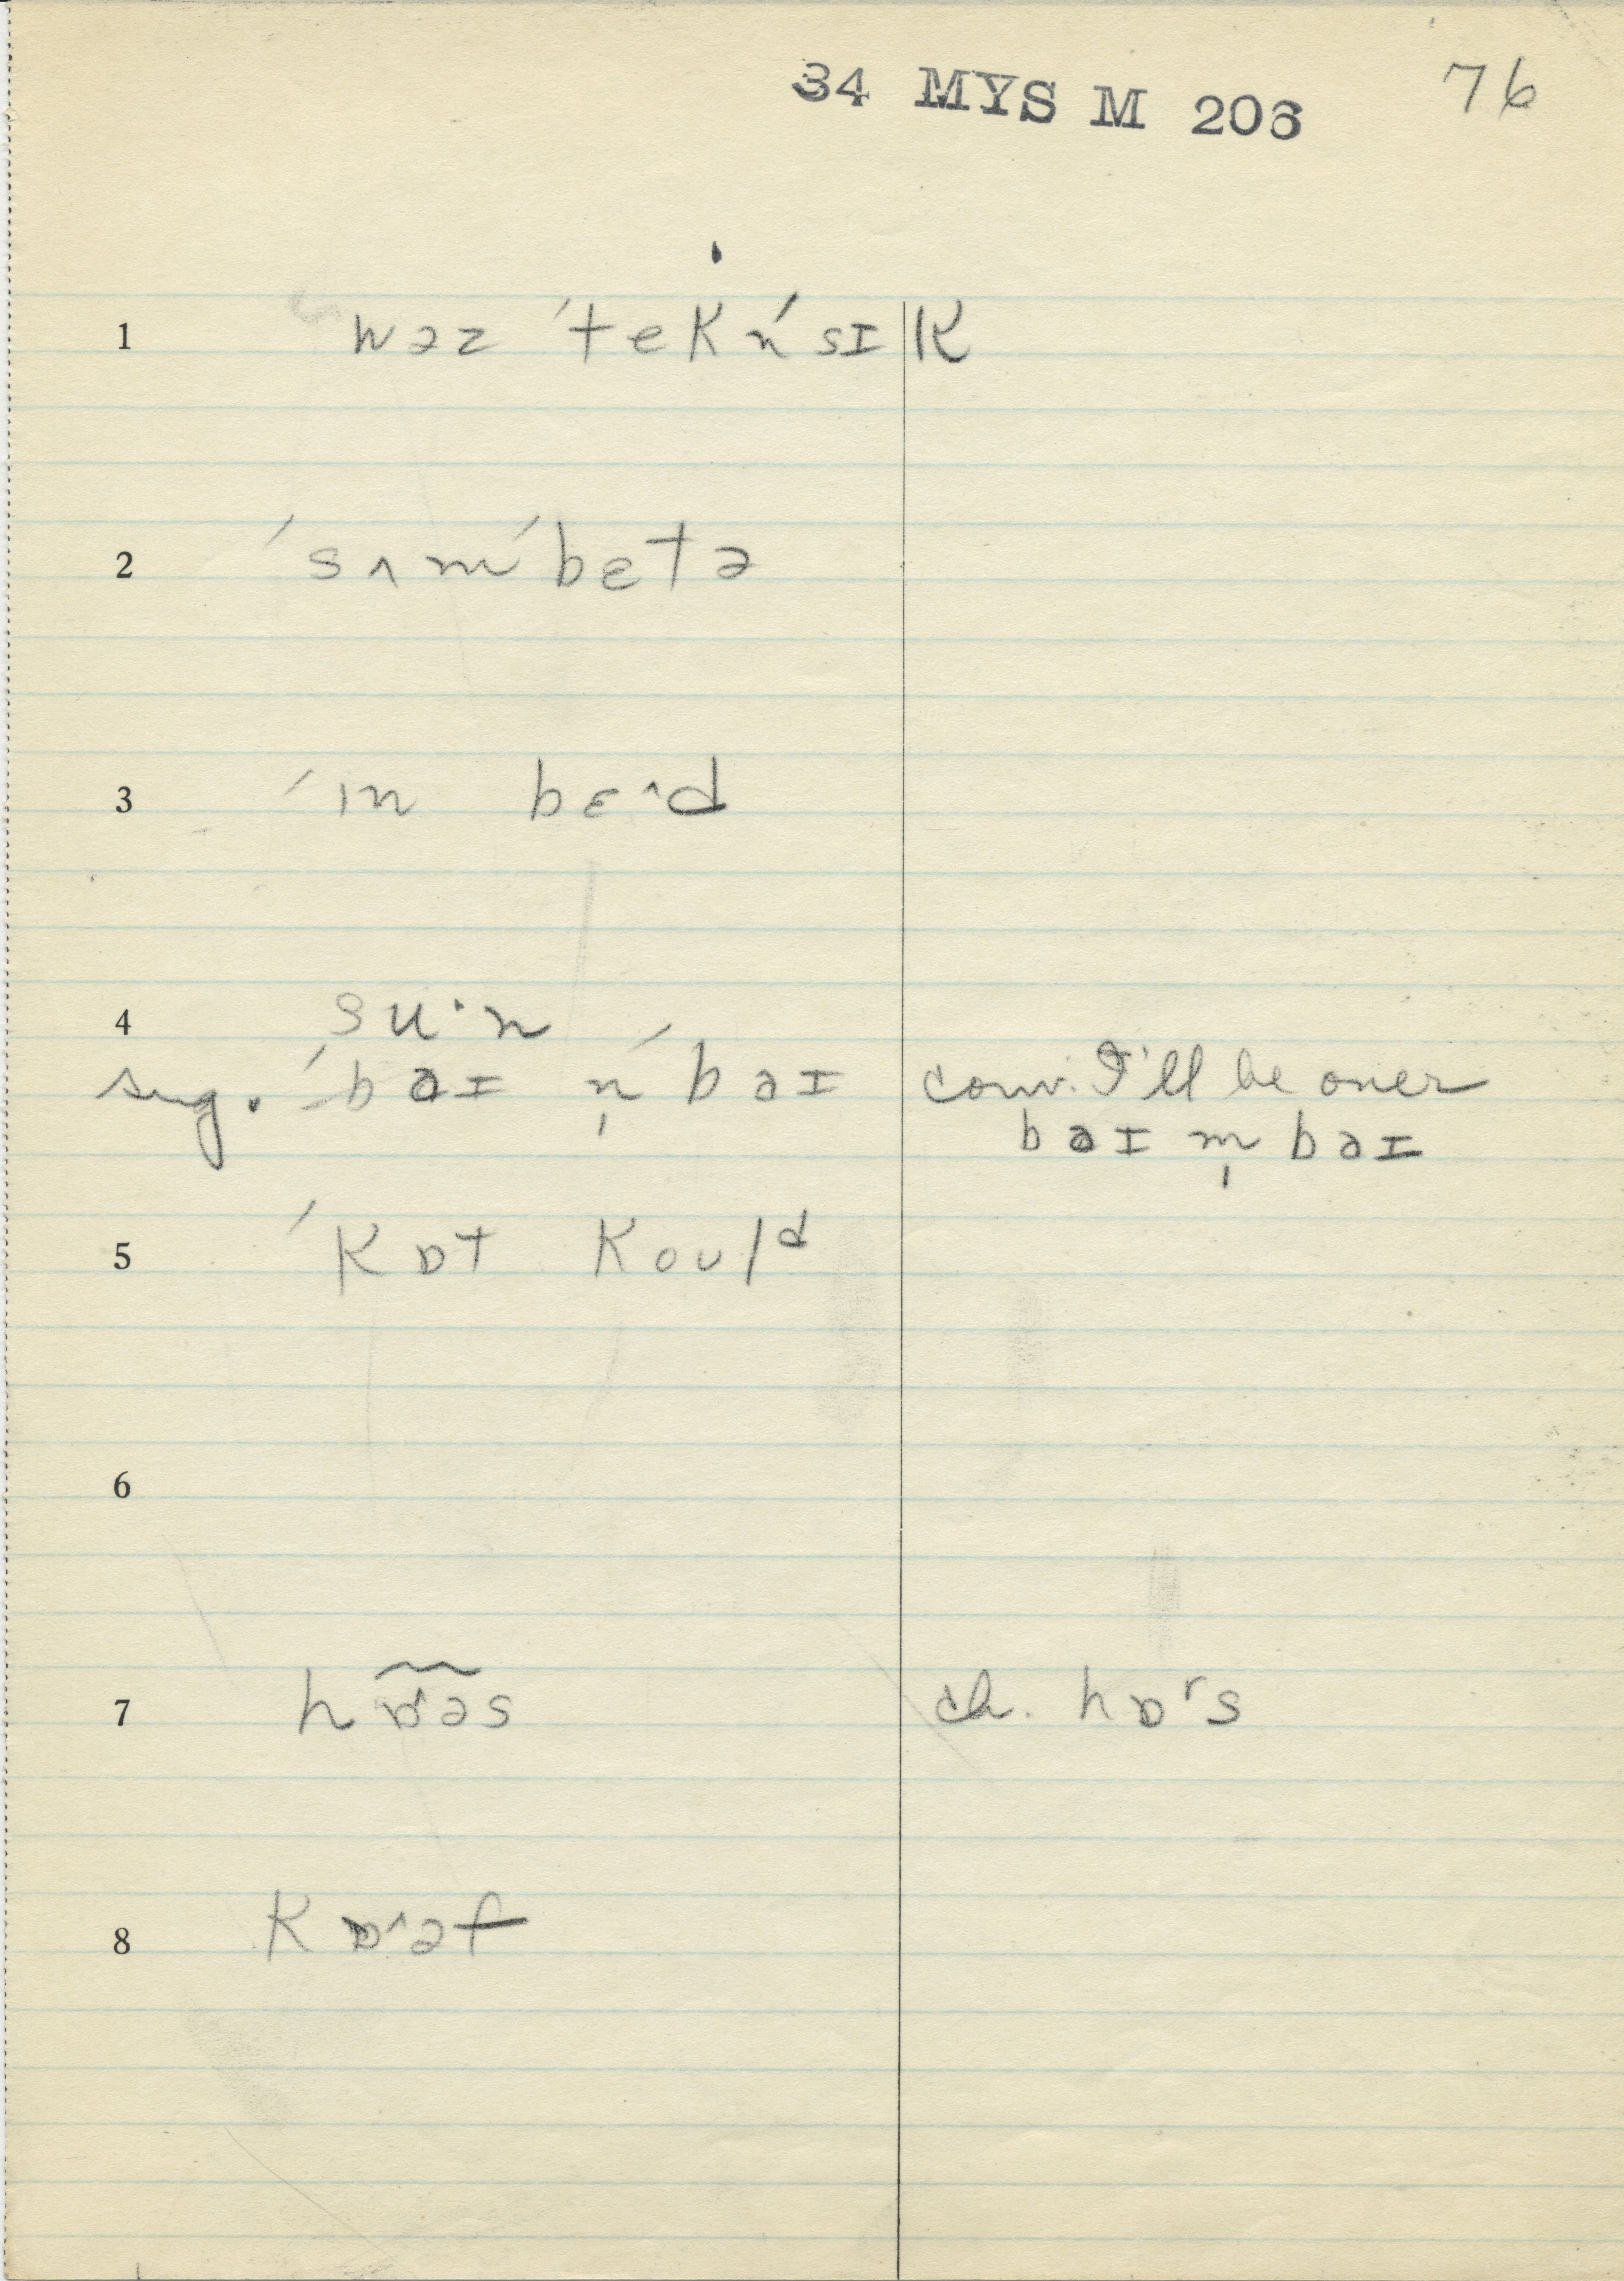 34 MYS M 206 76
1 wəz ˈtekn̩ˈsɪk
2 ˈsʌmˈbɛtə
3 ˈɪn bɛ˄d
4 su·n
sug. ˈbaɪ n̩ˈbaɪ conv. I'll be over
baɪ m̩ baɪ
5 ˈkɒt koulᵈ
6
7 hɒ˄əs ch. hɒʳs
8 kɒ˄əf